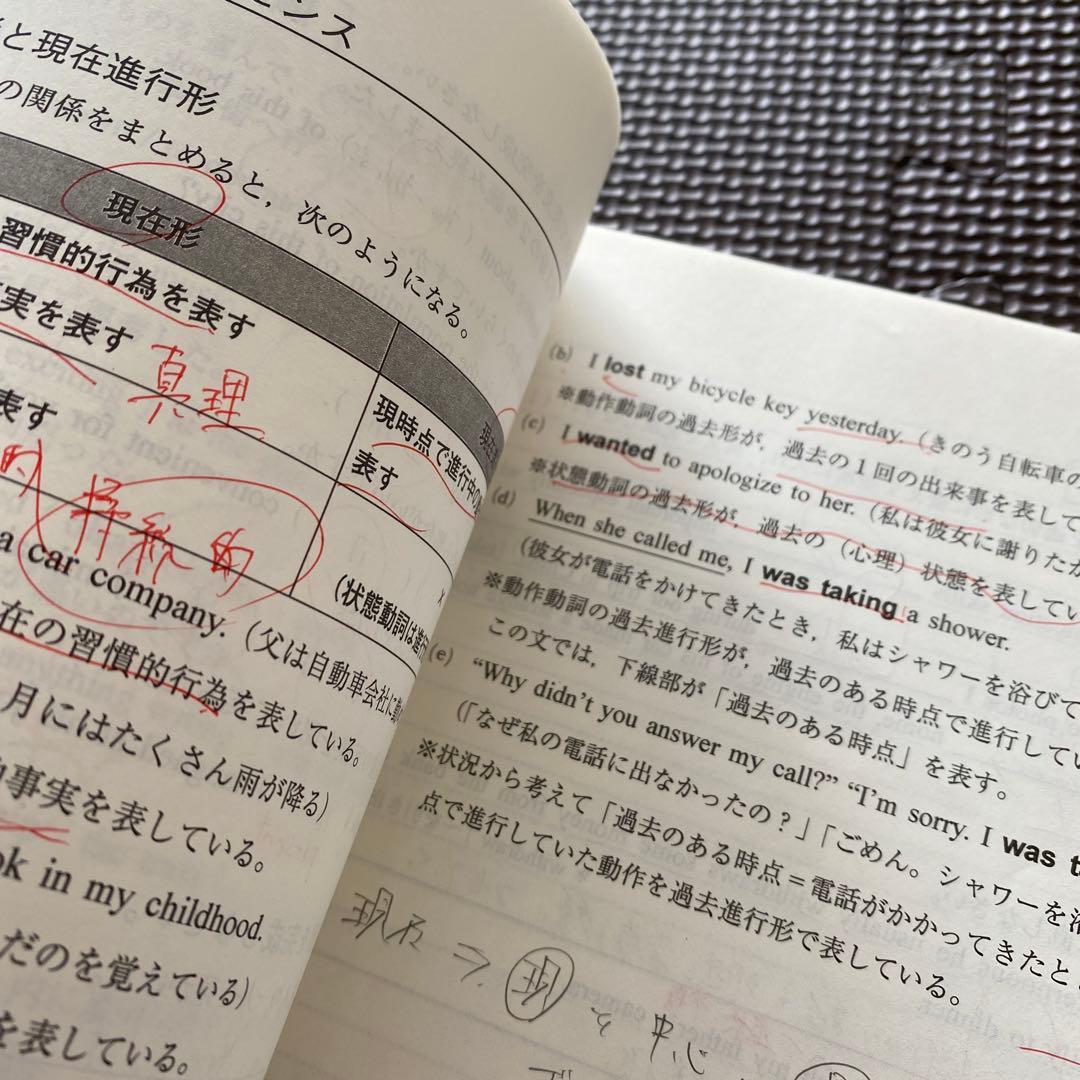 ンス
と現在進行形
の関係をまとめると，次のようになる。
現在形
習慣的行為を表す
実を表す 真理
表す
現時点で進行中の
表す
的 継続的
(状態動詞は進行
a car company.（父は自動車会社に
在の習慣的行為を表している。
月にはたくさん雨が降る)
事実を表している。
ok in my childhood.
だのを覚えている)
を表している。
(b) I lost my bicycle key yesterday.（きのう自転車の
※動作動詞の過去形が，過去の1回の出来事を表して
(c) I wanted to apologize to her.（私は彼女に謝りたか
※状態動詞の過去形が，過去の（心理）状態を表してい
(d) When she called me, I was taking a shower.
(彼女が電話をかけてきたとき，私はシャワーを浴びて
※動作動詞の過去進行形が，過去のある時点で進行してい
この文では，下線部が「過去のある時点」を表す。
(e) “Why didn't you answer my call?” “I'm sorry. I was t
(「なぜ私の電話に出なかったの？」「ごめん。シャワーを浴
※状況から考えて「過去のある時点＝電話がかかってきたと
点で進行していた動作を過去進行形で表している。
現在 ⇒ 現 を中心